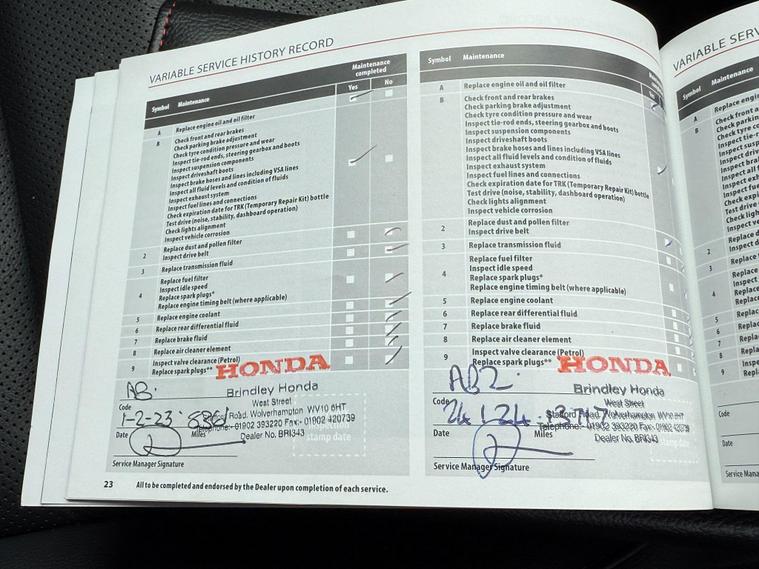 VARIABLE SERVICE HISTORY RECORD
Symbol Maintenance Maintenance completed
Yes No
A Replace engine oil and oil filter
B Check front and rear brakes
Check parking brake adjustment
Check tyre condition pressure and wear
Inspect tie-rod ends, steering gearbox and boots
Inspect suspension components
Inspect driveshaft boots
Inspect brake hoses and lines including VSA lines
Inspect all fluid levels and condition of fluids
Inspect exhaust system
Inspect fuel lines and connections
Check expiration date for TRK (Temporary Repair Kit) bottle
Test drive (noise, stability, dashboard operation)
Check lights alignment
Inspect vehicle corrosion
2 Replace dust and pollen filter
Inspect drive belt
3 Replace transmission fluid
4 Replace fuel filter
Inspect idle speed
Replace spark plugs*
Replace engine timing belt (where applicable)
5 Replace engine coolant
6 Replace rear differential fluid
7 Replace brake fluid
8 Replace air cleaner element
9 Inspect valve clearance (Petrol)
Replace spark plugs**
HONDA
Brindley Honda
West Street
Road, Wolverhampton WV10 6HT
Telephone:- 01902 393220 Fax:- 01902 420739
Dealer No. BRI343
Code
1-2-23
Date Miles
stamp date
Service Manager Signature
23 All to be completed and endorsed by the Dealer upon completion of each service.
Symbol Maintenance
A Replace engine oil and oil filter
B Check front and rear brakes
Check parking brake adjustment
Check tyre condition pressure and wear
Inspect tie-rod ends, steering gearbox and boots
Inspect suspension components
Inspect driveshaft boots
Inspect brake hoses and lines including VSA lines
Inspect all fluid levels and condition of fluids
Inspect exhaust system
Inspect fuel lines and connections
Check expiration date for TRK (Temporary Repair Kit) bottle
Test drive (noise, stability, dashboard operation)
Check lights alignment
Inspect vehicle corrosion
2 Replace dust and pollen filter
Inspect drive belt
3 Replace transmission fluid
4 Replace fuel filter
Inspect idle speed
Replace spark plugs*
Replace engine timing belt (where applicable)
5 Replace engine coolant
6 Replace rear differential fluid
7 Replace brake fluid
8 Replace air cleaner element
9 Inspect valve clearance (Petrol)
Replace spark plugs**
HONDA
AB2.
Brindley Honda
West Street
Code
Stafford Road, Wolverhampton WV10 6HT
Telephone:- 01902 393220 Fax:- 01902 420739
Dealer No. BRI343
Date Miles
stamp date
Service Manager Signature
VARIABLE SERV
Symbol Maintenance
Code
Date
Service Manag